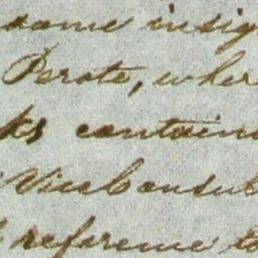 some insig
Perote, wher
ks contain
Vice Consul
reference to